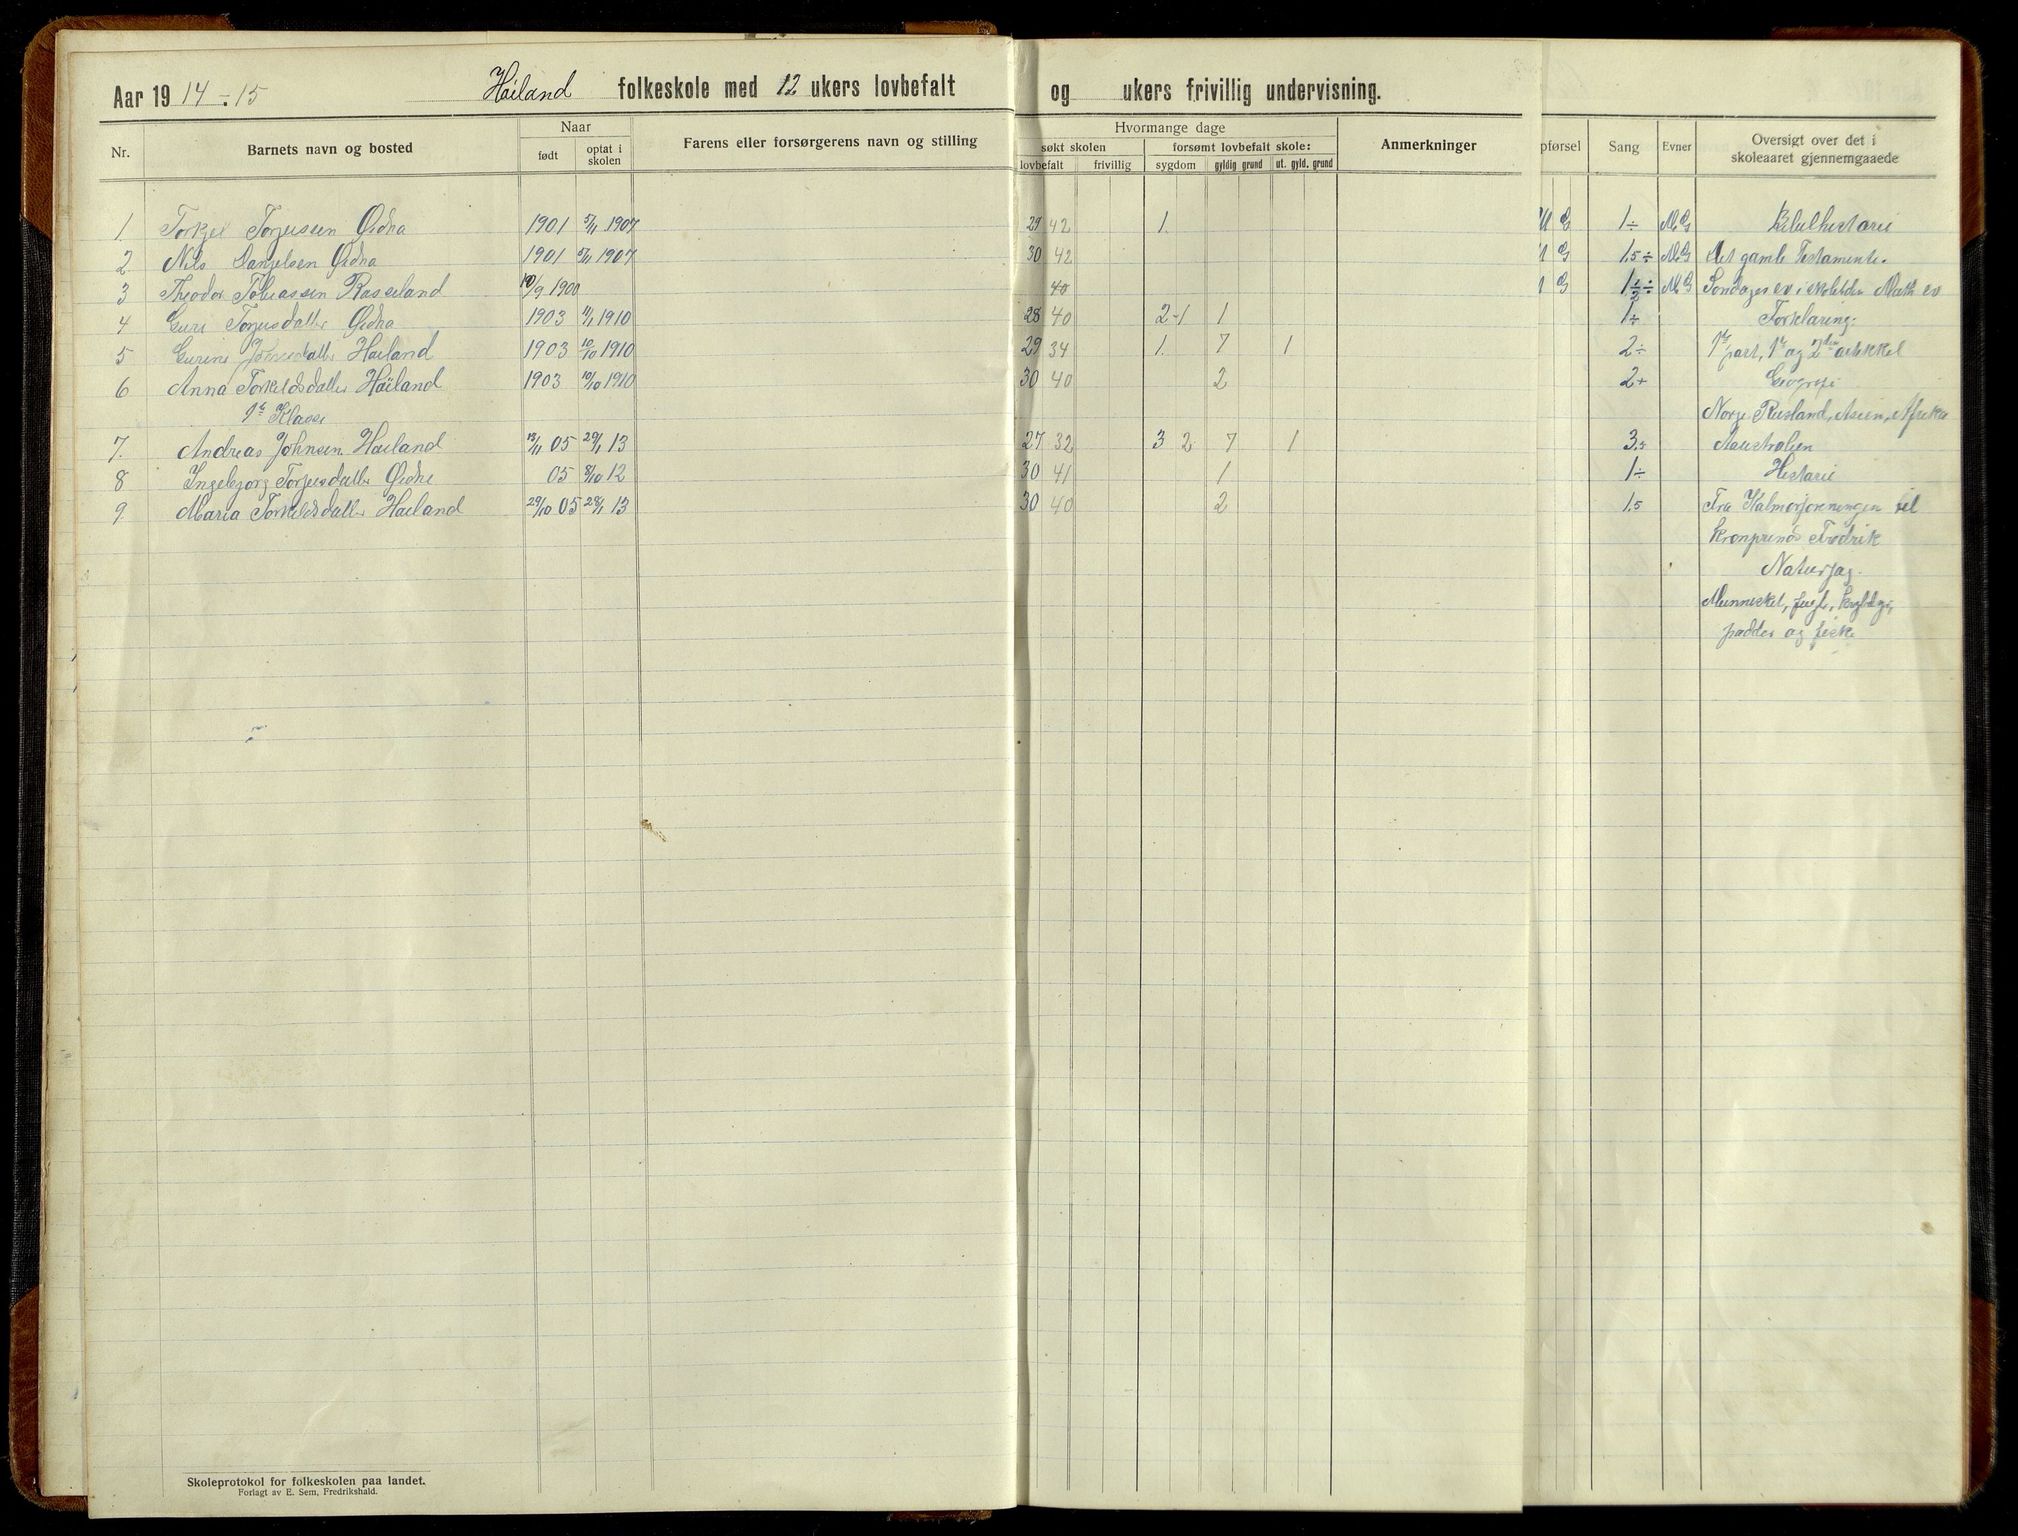 Aar 19 14 ÷ 15 Häiland folkeskole med 12 ukers lovbefalt og ukers frivillig undervisning.
Nr. Barnets navn og bosted Naar Farens eller forsørgerens navn og stilling Hvormange dage Anmerkninger pførsel Sang Evner Oversigt over det i skoleaaret gjennemgaaede
født optat i skolen søkt skolen forsømt lovbefalt skole:
lovbefalt frivillig sygdom gyldig grund ut. gyld. grund
1. Torkjel Torjussen Øidna 1901 5/11 1907 29 42 1. G 1÷ M.G Bibelhistorie
2 Nils Danjelsen Øidna 1901 5/11 1907 30 42 G 1.5 ÷ M.G Det gamle Testamente.
3 Theodor Tobiassen Rasseland 10/9 1900 40 G 1½÷ M.G Søndages ev i skoletiden Math ev
4 Guri Torjusdatter Øidna 1903 11/1 1910 28 40 2 -1 1 1÷ Forklaring:
5 Gurine datter Hailand 1903 10/10 1910 29 34 1. 7 1 2÷ 1ste part, 1ste og 2den artikkel
6 Anna Torkeldsdatter Häiland 1903 10/10 1910 30 40 2 2+ Geografi
1ste Klasse Norge Rusland, Asien, Afrika
7. Andreas Johnsen Hailand 13/11 05 29/1 13 27 32 3 2 7 1 3.5 Aaustralien
8 Ingebjorg Torjusdatter Øidne 05 8/10 12 30 41 1 1÷ Historie
9. Maria Torkeldsdatter Hailand 29/10 05 28/1 13 30 40 2 1.5 Fra Kalmarforeningen til
kronprins Fredrik
Naturfag.
Mennesket, fugle, krybdyr,
padder og fiske
Skoleprotokol for folkeskolen paa landet.
Forlagt av E. Sem, Fredrikshald.